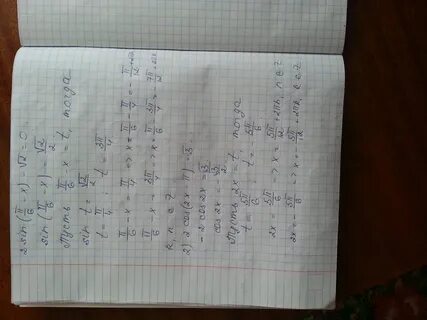 2 sin(π/6 - x) - √2 = 0
sin(π/6 - x) = √2/2
Пусть π/6 - x = t, тогда
sin t = √2/2
t = π/4, t = 3π/4
π/6 - x = π/4 => x = π/6 - π/4 = -π/12 + 2πk
π/6 - x = 3π/4 => x = π/6 - 3π/4 = -7π/12 + 2πk
k, n ∈ Z
2) 2 cos(2x - π) = √3
-2 cos 2x = √3
cos 2x = -√3/2
Пусть 2x = t, тогда
t = 5π/6, t = -5π/6
2x = 5π/6 -> x = 5π/12 + 2πn, n ∈ Z
2x = -5π/6 -> x = -5π/12 + 2πk, k ∈ Z